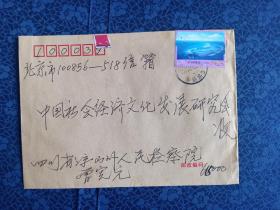 100037
北京市100856—518信箱
中国社会经济文化发展研究会
收
四川省凉山州人民检察院
邮政编码
615000